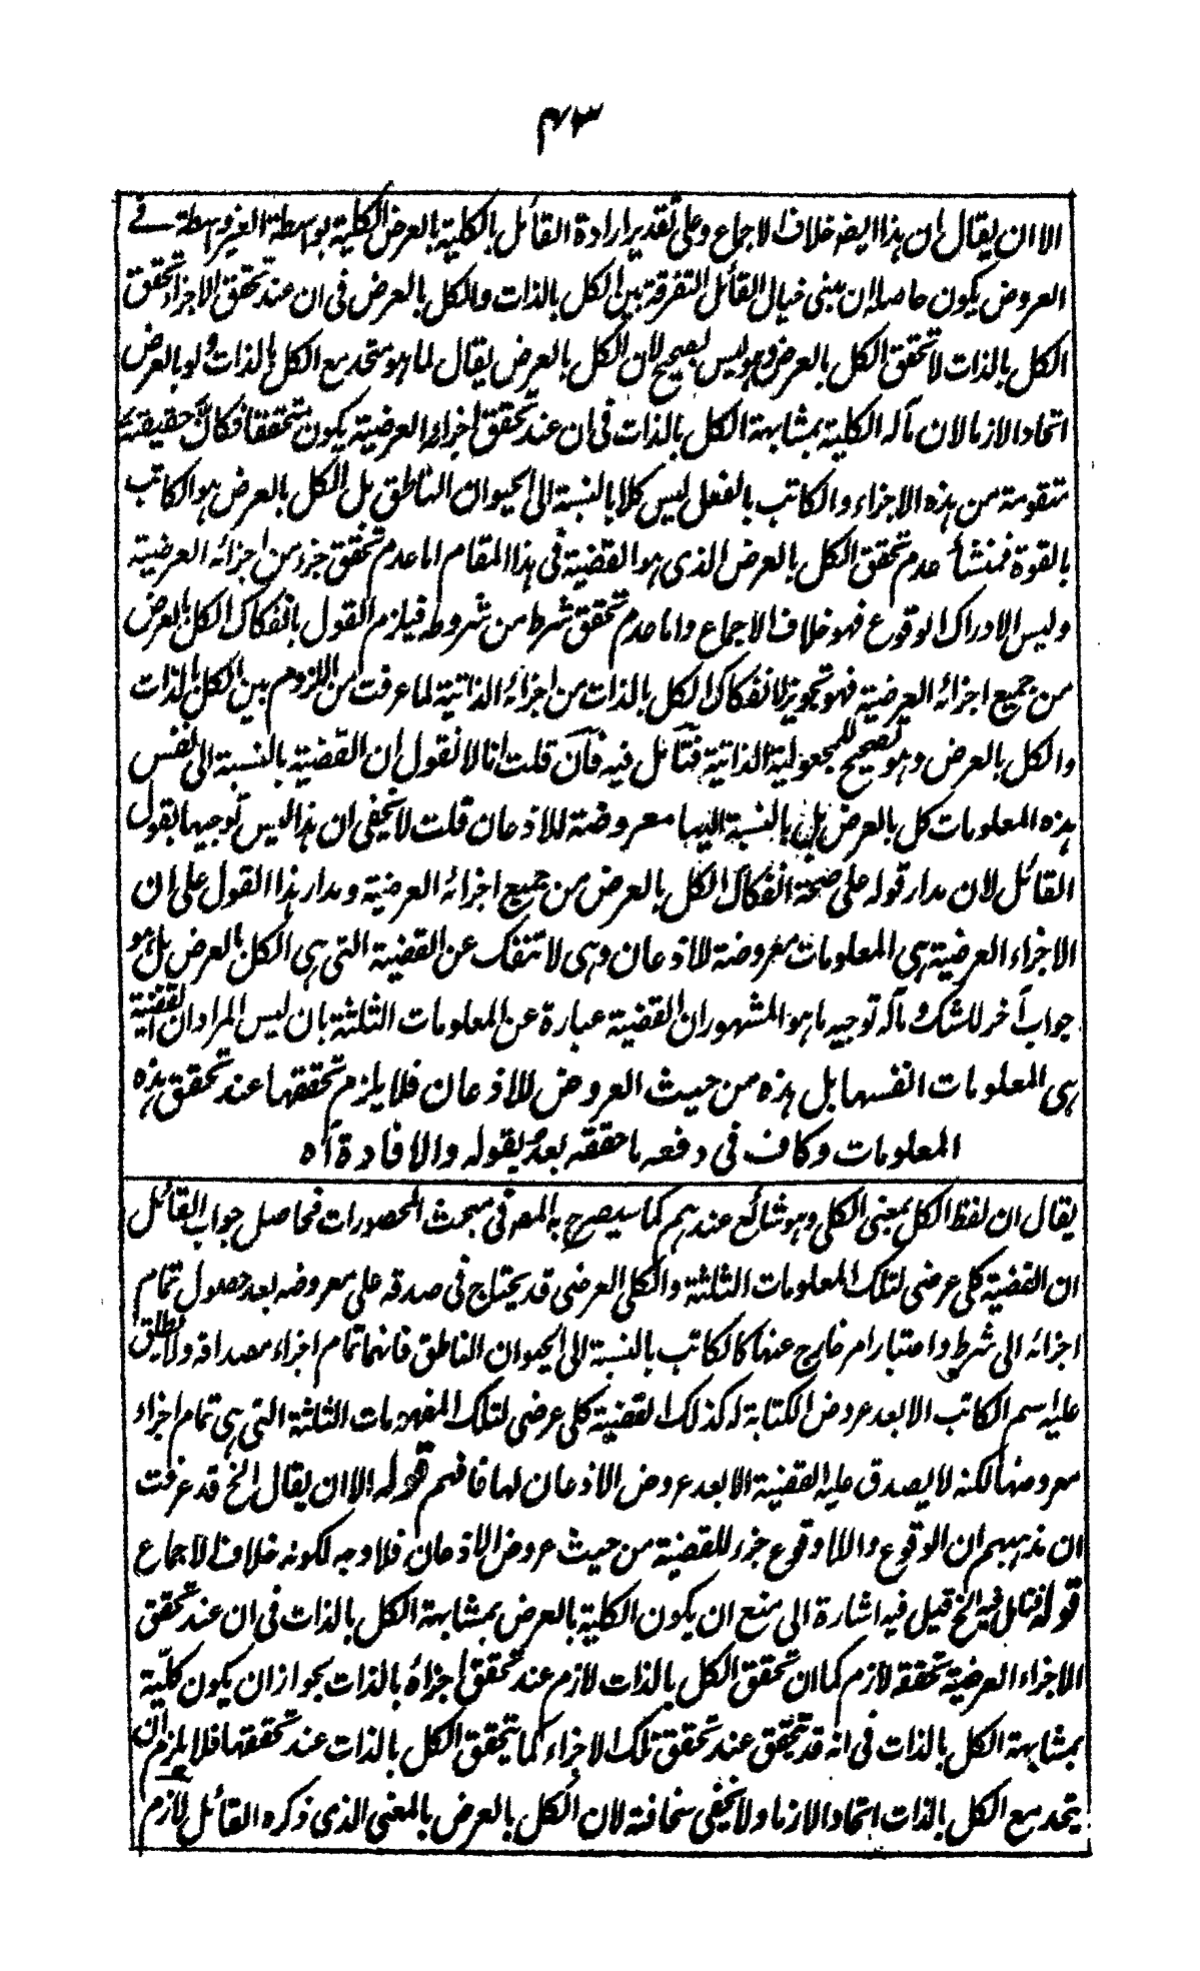 ٤٣
الا ان يقال ان هذا ايضه خلاف الاجماع وعلى تقدير ارادة القائل بالكلية بالعرض الكلية بواسطة الغير واسطة في
العروض يكون حاصله ان مبنى خيال القائل التفرقة بين الكل بالذات والكل بالعرض فى ان عند تحقق الاجزاء تحقق
الكل بالذات لا تحقق الكل بالعرض وهو ليس بصحيح لان الكل بالعرض يقال لما هو متحد مع الكل بالذات ولو بالعرض
اتحادا لازما لان مآله الكلية بمشابهة الكل بالذات فى ان عند تحقق اجزاءه العرضية يكون متحققا فكان حقيقته
متقومة من هذه الاجزاء والكاتب بالفعل ليس كلا بالنسبة الى الحيوان الناطق بل الكل بالعرض هو الكاتب
بالقوة فمنشأ عدم تحقق الكل بالعرض الذى هو القضية فى هذا المقام اما عدم تحقق جزء من اجزائه العرضية
وليس الا ادراك الوقوع فهو خلاف الاجماع واما عدم تحقق شرط من شروطه فيلزم القول بانفكاك الكل بالعرض
من جميع اجزائه العرضية فهو تجويز لانفكاك الكل بالذات من اجزائه الذاتية لما عرفت من اللزوم بين الكل بالذات
والكل بالعرض وهو تصحيح للمجعولية الذاتية فتأمل فيه فان قلت انا لا نقول ان القضية بالنسبة الى نفس
هذه المعلومات كل بالعرض بل بالنسبة اليها معروضة للاذعان قلت لا يخفى ان هذا ليس توجيها بقول
القائل لان مدار قوله على صحة انفكاك الكل بالعرض من جميع اجزائه العرضية ومدار هذا القول على ان
الاجزاء العرضية هى المعلومات معروضة للاذعان وهى لا تنفك عن القضية التى هى الكل بالعرض بل هو
جواب آخر للشك مآله توجيه ما هو المشهور ان القضية عبارة عن المعلومات الثلثة بان ليس المراد ان القضية
هى المعلومات انفسها بل هذه من حيث العروض للاذعان فلا يلزم تحققها عند تحقق هذه
المعلومات وكاف فى دفعه ما حققه بعد بقوله والافادة آه
يقال ان لفظ الكل بمعنى الكلى وهو شائع عندهم كما سيصرح به المصه فى مبحث المحصورات فحاصل جواب القائل
ان القضية كلى عرضى لتلك المعلومات الثلثة والكلى العرضى قد يحتاج فى صدقه على معروضه بعد حصول تمام
اجزائه الى شرط واعتبار امر خارج عنها كالكاتب بالنسبة الى الحيوان الناطق فانهما تمام اجزاء مصداقه ولا يطلق
عليه اسم الكاتب الا بعد عروض الكتابة له كذلك القضية كلى عرضى لتلك المفهومات الثلثة التى هى تمام اجزاء
معروضها لكنه لا يصدق عليه القضية الا بعد عروض الاذعان لها فافهم قوله الا ان يقال الخ قد عرفت
ان مذهبهم ان الوقوع واللاوقوع جزء للقضية من حيث عروض الاذعان فلا وجه لكونه خلاف الاجماع
قوله فتامل فيه الخ قيل فيه اشارة الى منع ان يكون الكلية بالعرض بمشابهة الكل بالذات فى ان عند تحقق
الاجزاء العرضية تحققه لازم كما ان تحقق الكل بالذات لازم عند تحقق اجزاؤه بالذات بجواز ان يكون كلية
بمشابهة الكل بالذات فى انه قد يتحقق عند تحقق تلك الاجزاء كما يتحقق الكل بالذات عند تحققها فلا يلزم ان
يتحد مع الكل بالذات اتحادا لازما ولا يخفى سخافته لان الكل بالعرض بالمعنى الذى ذكره القائل لازم